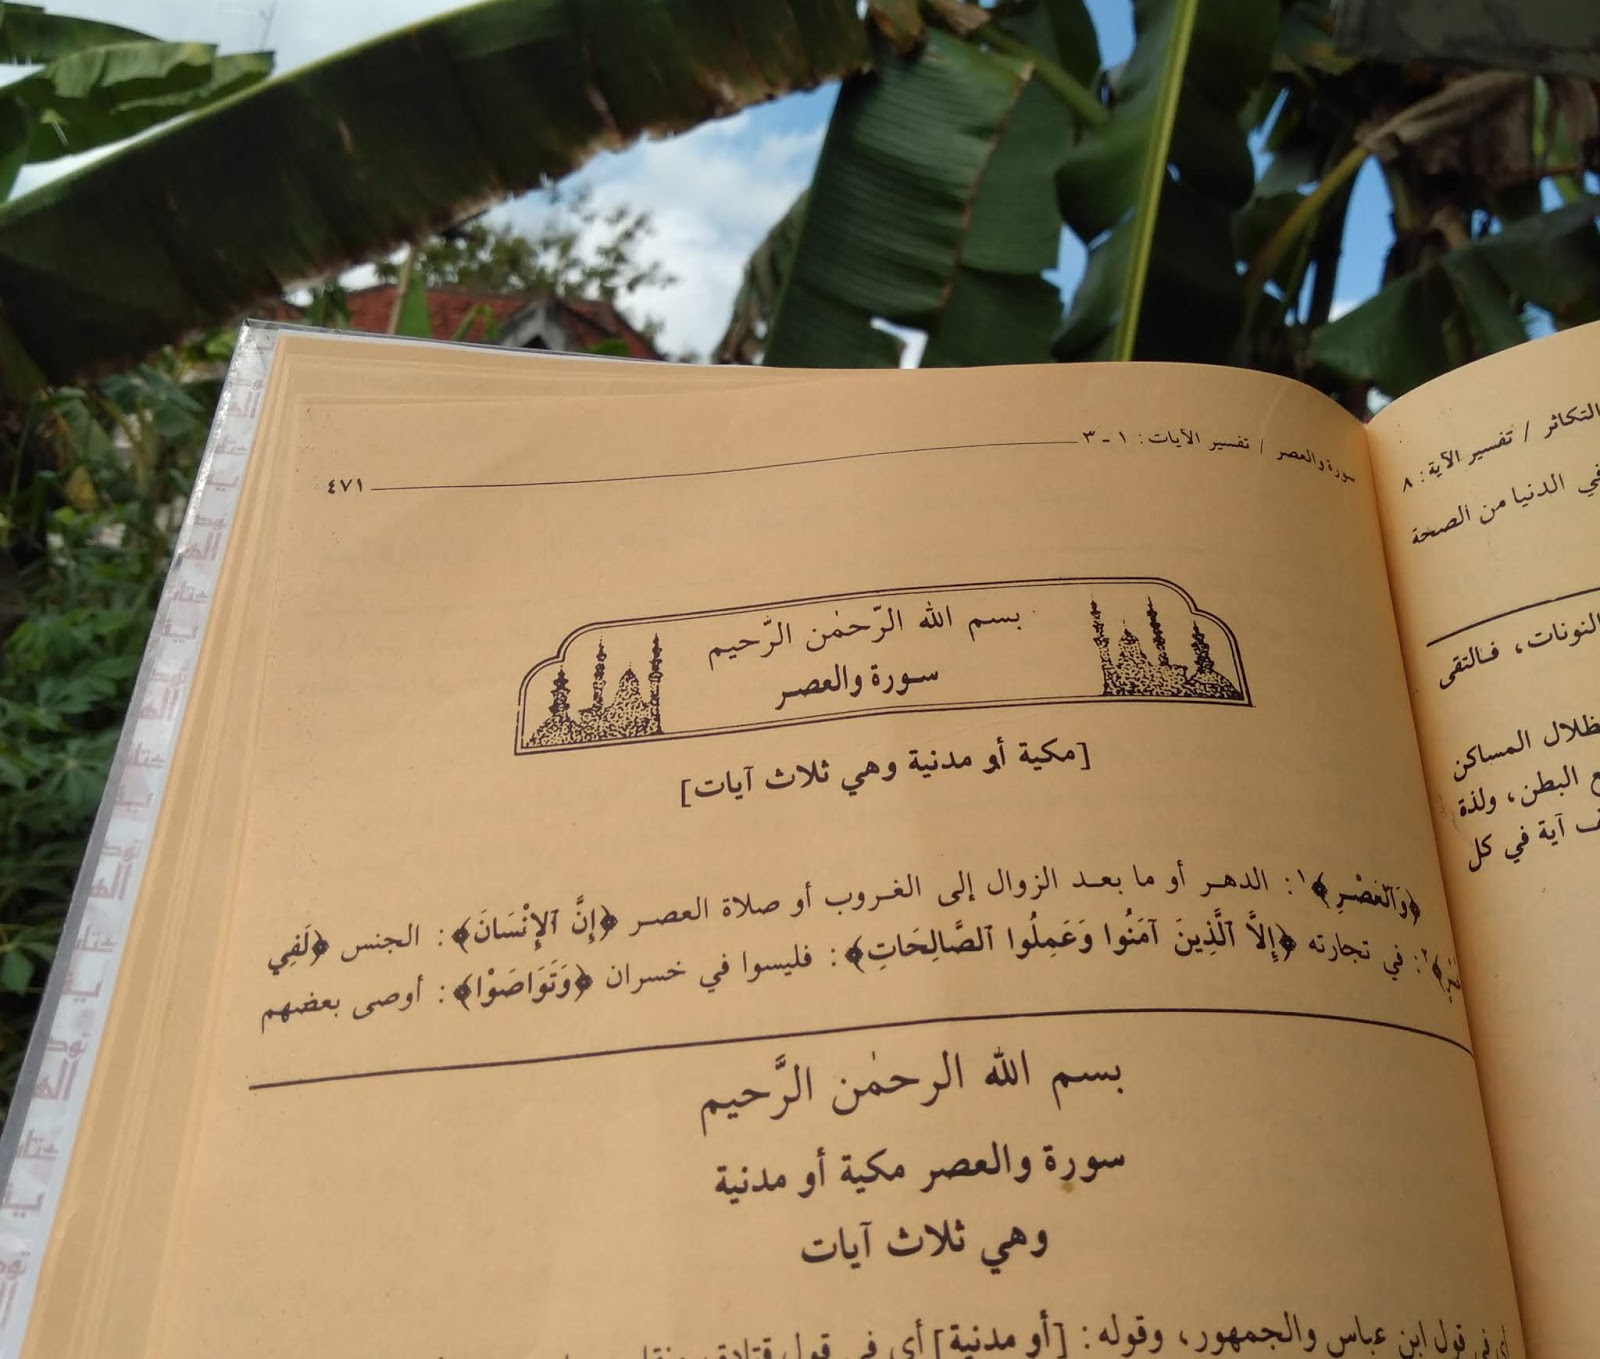 سورة والعصر / تفسير الآيات: ١ - ٣
٤٧١
بسم الله الرّحمٰن الرَّحيم
سورة والعصر
[مكية أو مدنية وهي ثلاث آيات]
﴿وَٱلْعَصْرِ﴾١: الدهر أو ما بعد الزوال إلى الغروب أو صلاة العصر ﴿إِنَّ ٱلإِنْسَانَ﴾: الجنس ﴿لَفِي
﴾٢: في تجارته ﴿إِلاَّ ٱلَّذِينَ آمَنُوا وَعَمِلُوا ٱلصَّالِحَاتِ﴾: فليسوا في خسران ﴿وَتَوَاصَوْا﴾: أوصى بعضهم
بسم الله الرحمٰن الرَّحيم
سورة والعصر مكية أو مدنية
وهي ثلاث آيات
أي في قول ابن عباس والجمهور، وقوله: [أو مدنية] أي في قول قتادة
التكاثر / تفسير الآية: ٨
في الدنيا من الصحة
النونات، فالتقى
ظلال المساكن
البطن، ولذة
آية في كل